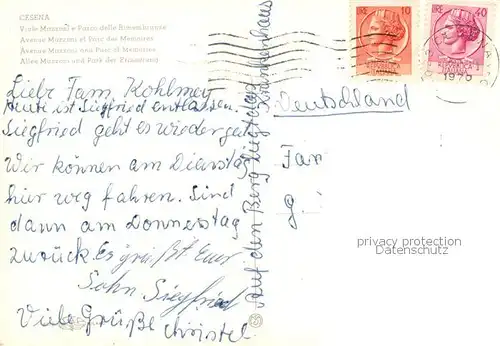 CESENA
Viale Mazzoni e Parco delle Rimembranze
Avenue Mazzoni et Parc des Memoires
Avenue Mazzoni and Parc of Memories
Allee Mazzoni und Park der Erinnerung
LIRE 10
LIRE 40
1970
Liebe Fam. Kohlmey
Heute ist Siegfried entlassen.
Siegfried geht es wieder gut
Wir können am Dienstag
hier weg fahren. Sind
dann am Donnestag
zurück. Es grüßt Euer
Sohn Siegfried
Viele Grüße Christel
Auf den Berg liegt das Krankenhaus
Deutschland
Fam
privacy protection
Datenschutz